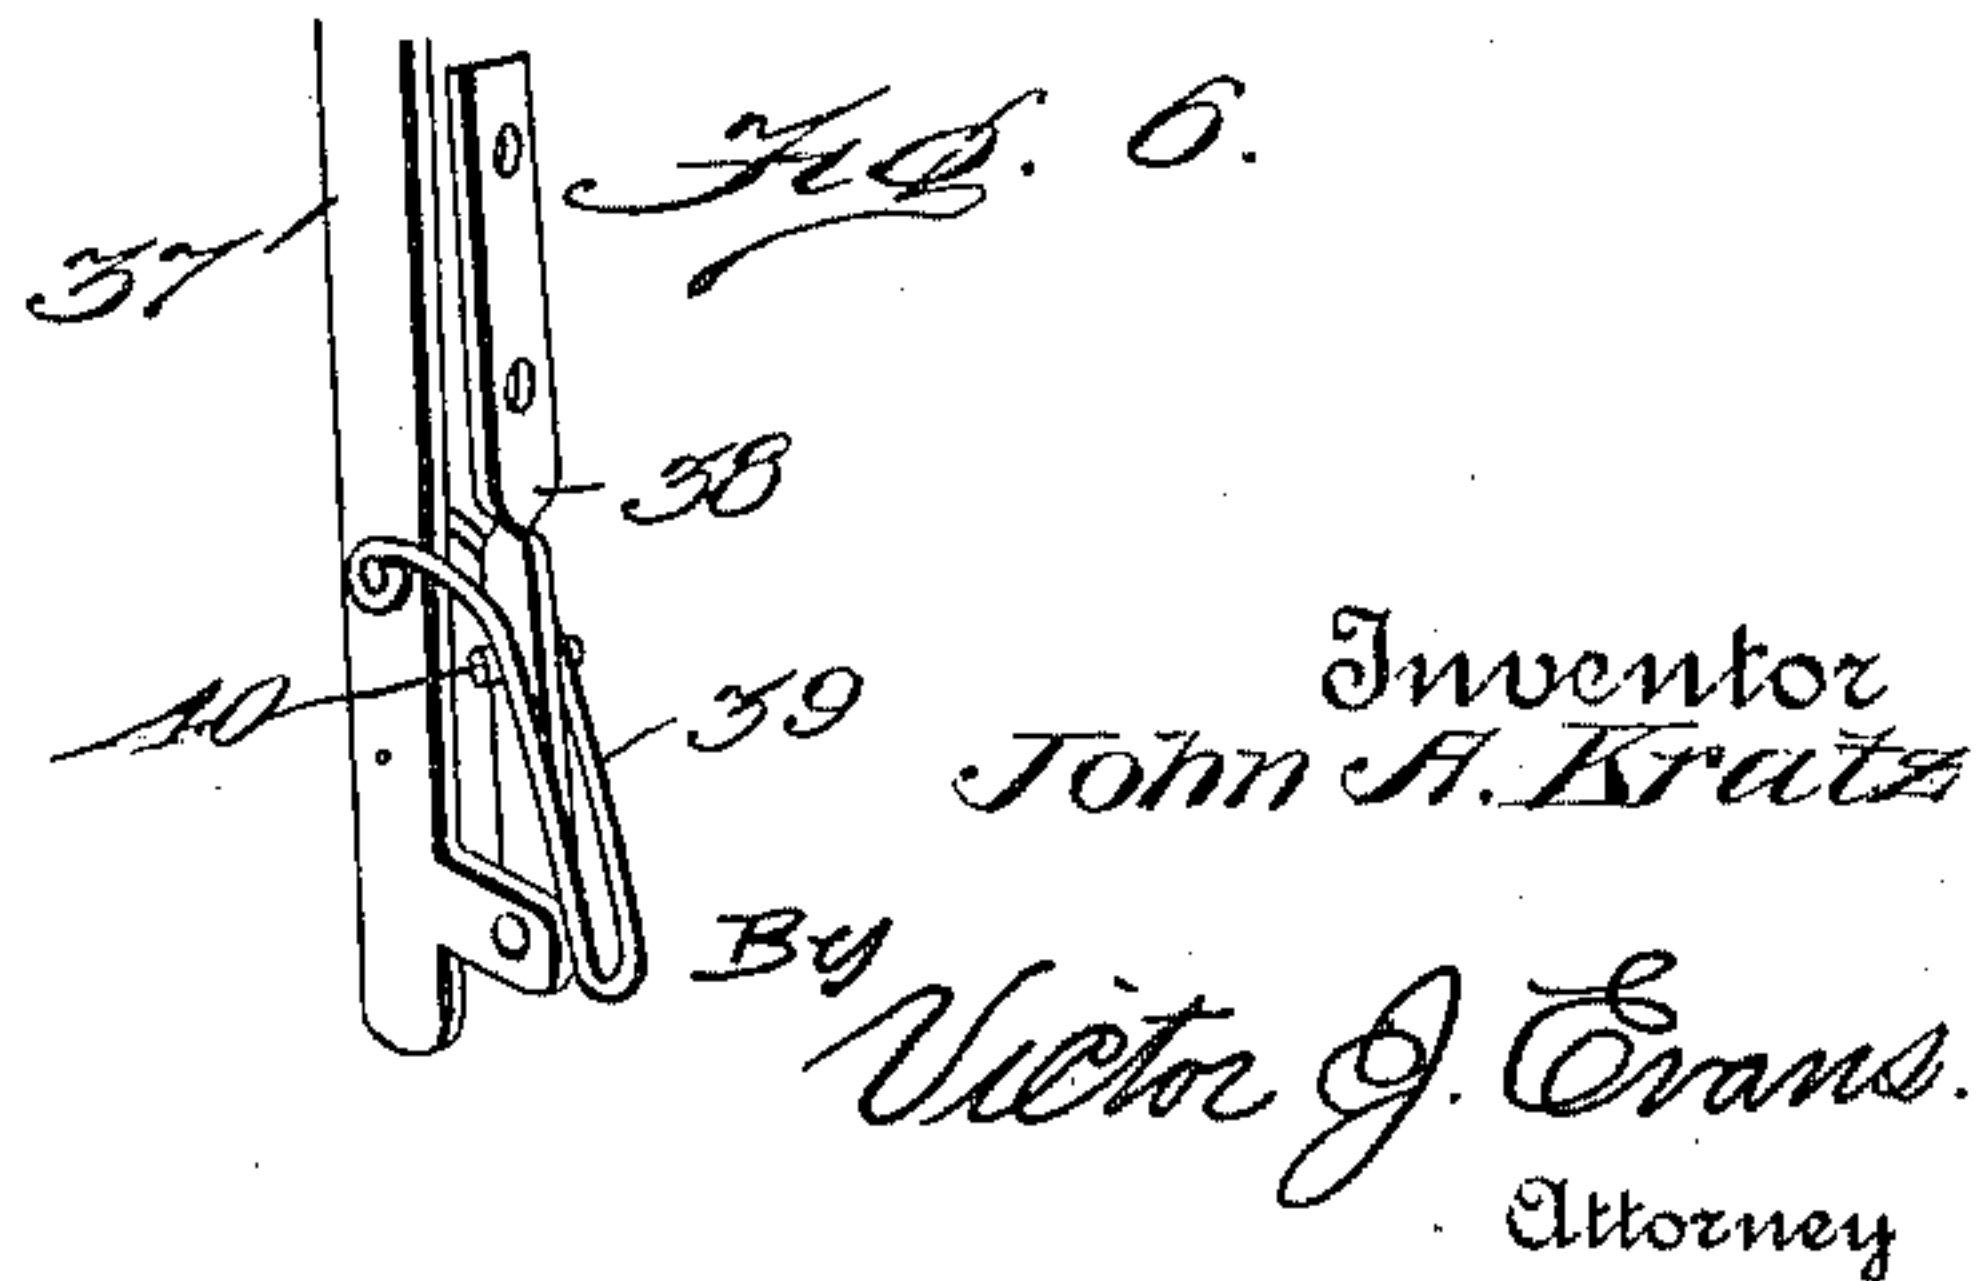 Fig. 6.
37
38
10
39
Inventor
John A. Kratz
By
Victor J. Evans.
Attorney